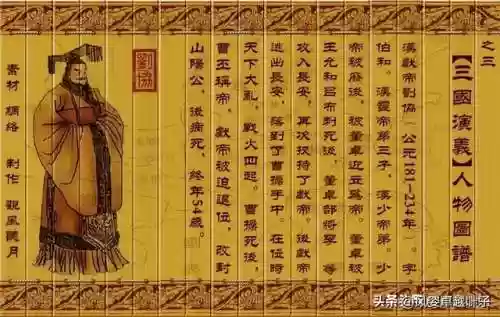 之三
【三國演義】人物圖譜
漢獻帝劉協（公元181-234年），字
伯和。漢靈帝第三子，漢少帝弟。少
帝被廢後，被董卓近立爲帝。董卓被
王允和呂布刺死後，董卓部將李等
攻入長安，再次挾持了獻帝。後
逃出長安，落到了曹操手中。在位時
天下大亂，戰火四起。曹操死後，
曹丕稱帝，獻帝被迫退位，改封
山陽公。後病死，終年54歲。
劉協
素材 網絡 制作 觀風聽月
头条